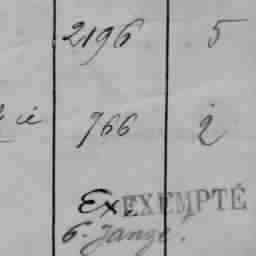 2196 5
ié 766 2
Ex. EXEMPTÉ
6. Janze.